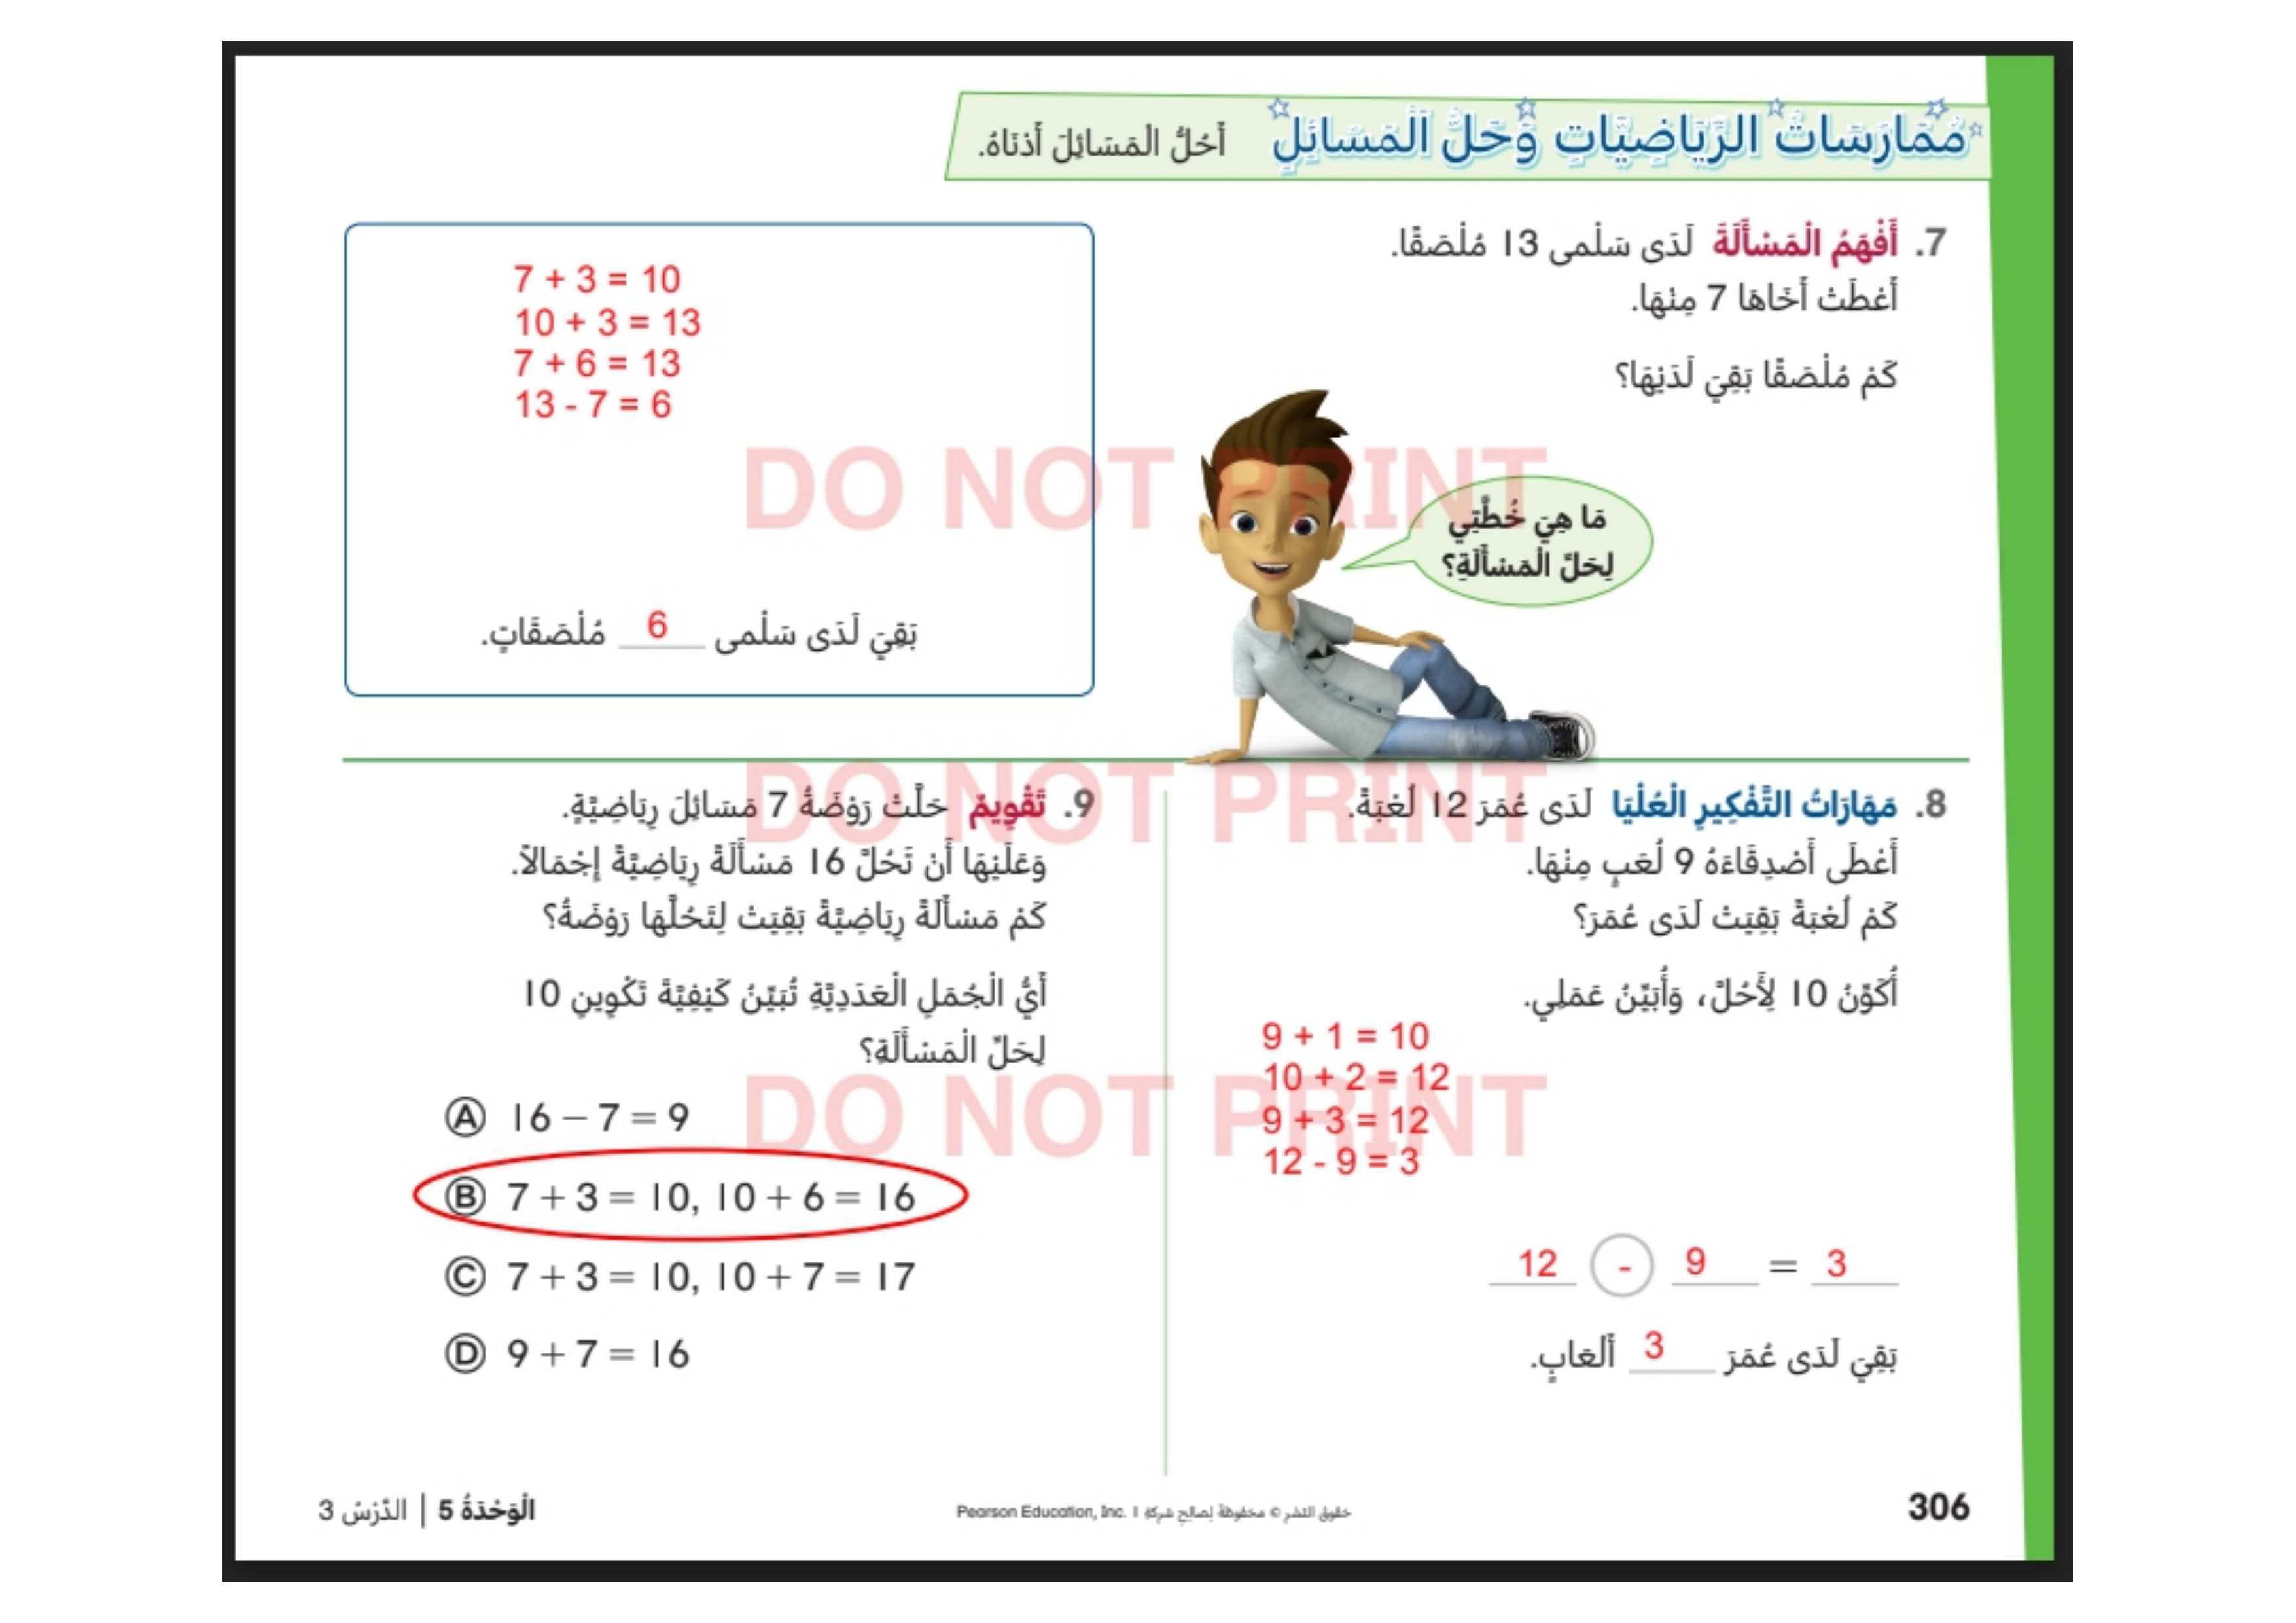 مُمَارَسَاتُ الرِّيَاضِيَّاتِ وَحَلُّ الْمَسَائِلِ أَحُلُّ الْمَسَائِلَ أَدْنَاهُ.
7. أَفْهَمُ الْمَسْأَلَةَ لَدَى سَلْمى 13 مُلْصَقًا.
أَعْطَتْ أَخَاهَا 7 مِنْهَا.
كَمْ مُلْصَقًا بَقِيَ لَدَيْهَا؟
مَا هِيَ خُطَّتِي
لِحَلِّ الْمَسْأَلَةِ؟
7 + 3 = 10
10 + 3 = 13
7 + 6 = 13
13 - 7 = 6
بَقِيَ لَدَى سَلْمى 6 مُلْصَقَاتٍ.
DO NOT PRINT
DO NOT PRINT
DO NOT PRINT
8. مَهَارَاتُ التَّفْكِيرِ الْعُلْيَا لَدَى عُمَرَ 12 لُعْبَةً.
أَعْطَى أَصْدِقَاءَهُ 9 لُعَبٍ مِنْهَا.
كَمْ لُعْبَةً بَقِيَتْ لَدَى عُمَرَ؟
أُكَوِّنُ 10 لِأَحُلَّ، وَأُبَيِّنُ عَمَلِي.
9 + 1 = 10
10 + 2 = 12
9 + 3 = 12
12 - 9 = 3
12 - 9 = 3
بَقِيَ لَدَى عُمَرَ 3 أَلْعَابٍ.
9. تَقْوِيمٌ حَلَّتْ رَوْضَةُ 7 مَسَائِلَ رِيَاضِيَّةٍ.
وَعَلَيْهَا أَنْ تَحُلَّ 16 مَسْأَلَةً رِيَاضِيَّةً إِجْمَالاً.
كَمْ مَسْأَلَةً رِيَاضِيَّةً بَقِيَتْ لِتَحُلَّهَا رَوْضَةُ؟
أَيُّ الْجُمَلِ الْعَدَدِيَّةِ تُبَيِّنُ كَيْفِيَّةَ تَكْوِينِ 10
لِحَلِّ الْمَسْأَلَةِ؟
Ⓐ 16 − 7 = 9
Ⓑ 7 + 3 = 10, 10 + 6 = 16
Ⓒ 7 + 3 = 10, 10 + 7 = 17
Ⓓ 9 + 7 = 16
306
حقوق النشر © محفوظةٌ لِصالِحِ شركةِ Pearson Education, Inc. 1
الْوَحْدَةُ 5 | الدَّرْسُ 3